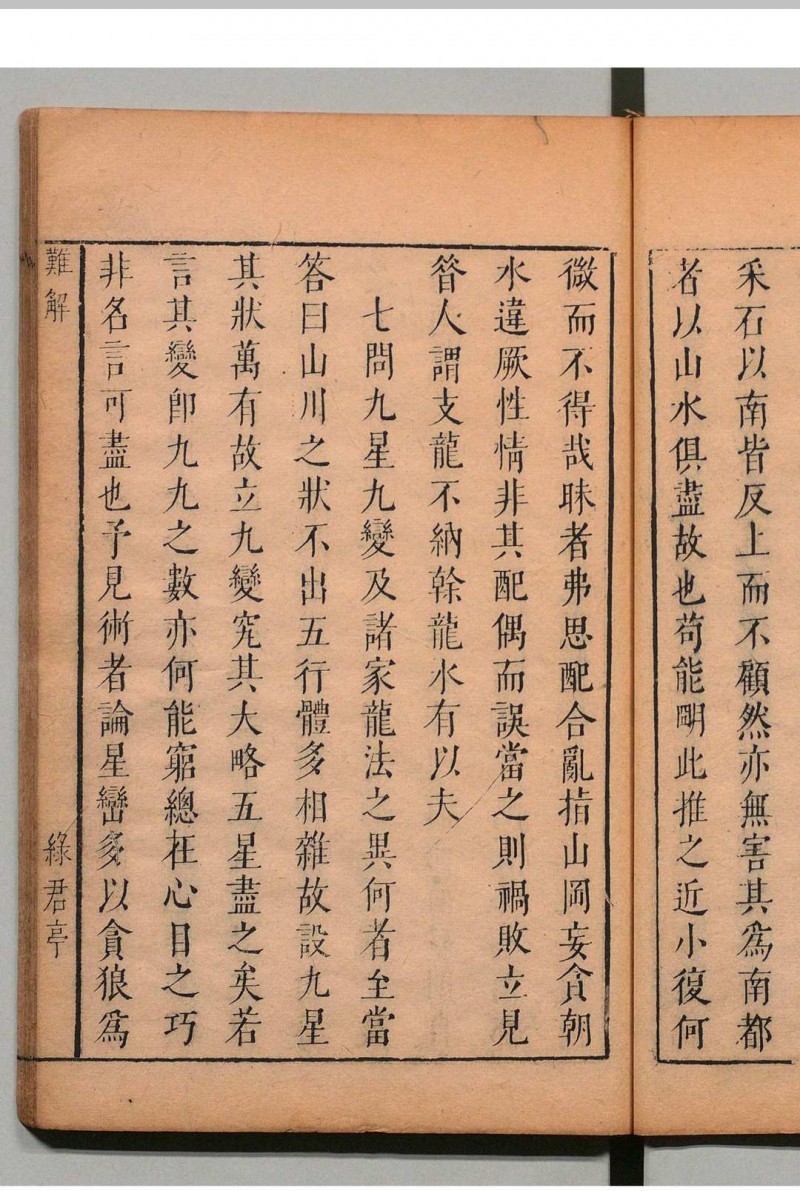 采石以南皆反上而不顧然亦無害其為南都
者以山水俱盡故也苟能明此推之近小復何
微而不得哉昧者弗思配合亂指山岡妄貪朝
水違厥性情非其配偶而誤當之則禍敗立見
昝人謂支龍不納榦龍水有以夫
七問九星九變及諸家龍法之異何者至當
答曰山川之狀不出五行體多相雜故設九星
其狀萬有故立九變究其大略五星盡之矣若
言其變卽九九之數亦何能窮總在心目之巧
非名言可盡也予見術者論星巒多以貪狼為
難解
綠君亭